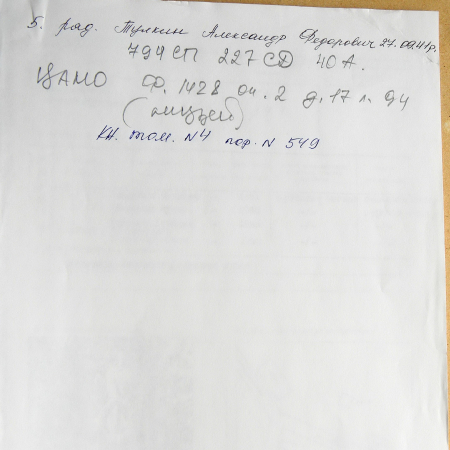 5. ряд. Тулкин Александр Федорович 27.09.41г.
794 СП 227 СД 40 А.
ЦАМО Ф. 1428 оп. 2 д. 17 л. 94
(лицей)
Кн. том. N4 пор. N 549